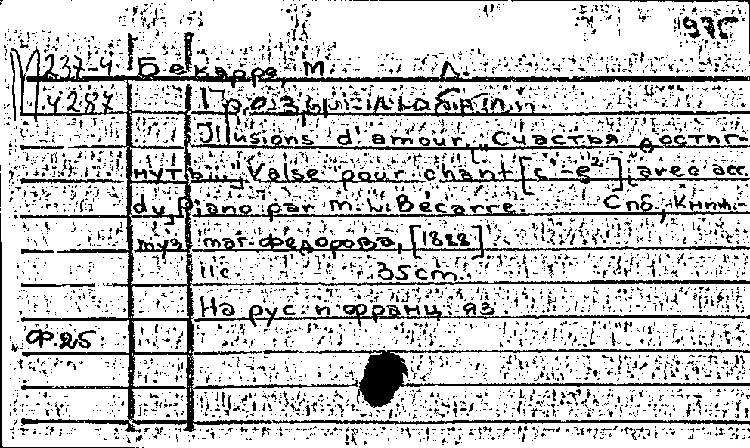 975
М 237-4 Бекарре, М. Л.
4287
Illusions d'amour. „Счастья достиг-
нуть..." Valse pour chant [c¹-g²] avec acc.
du piano par M. L. Bécarre. Спб., книж.-
муз. маг. Федорова, [1822]
11с. 35cm.
На рус. и франц. яз.
Ф.25